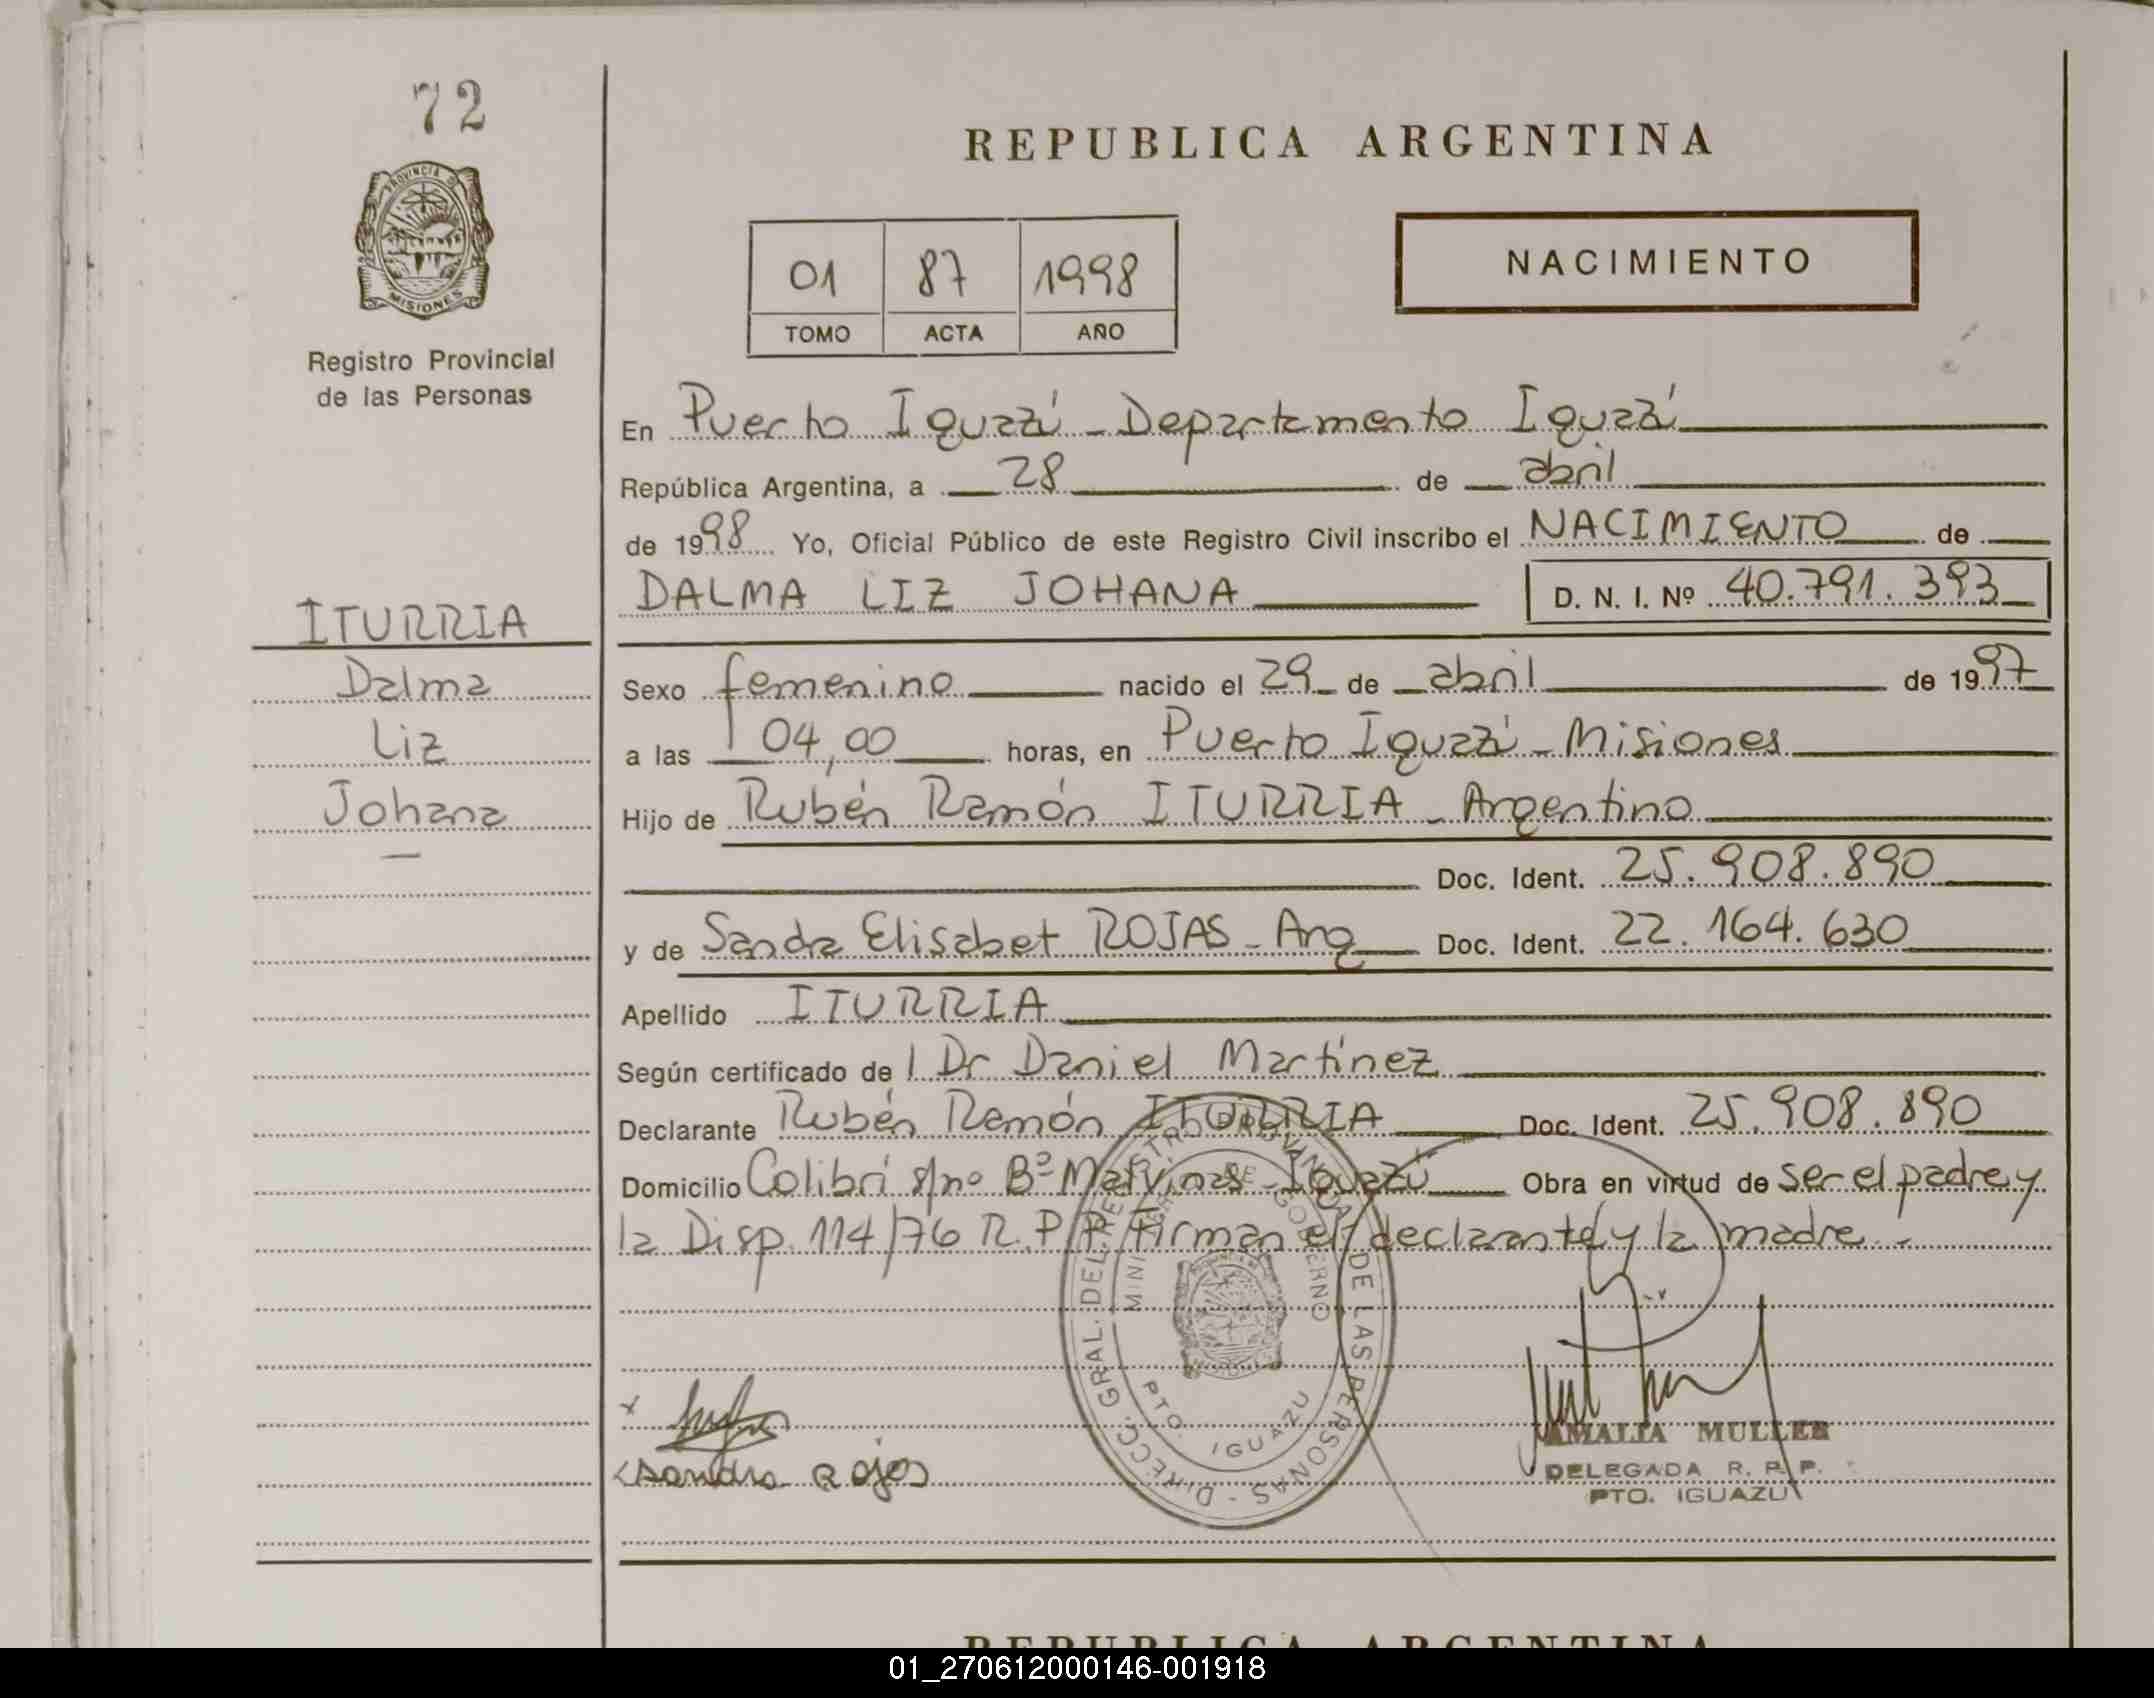 72
PROVINCIA DE
MISIONES
Registro Provincial
de las Personas
ITURRIA
Dalma
Liz
Johana
REPUBLICA ARGENTINA
01 87 1998
TOMO ACTA AÑO
NACIMIENTO
En Puerto Iguazú - Departamento Iguazú
República Argentina, a 28 de abril
de 1998 Yo, Oficial Público de este Registro Civil inscribo el NACIMIENTO de
DALMA LIZ JOHANA D. N. I. Nº 40.791.393
Sexo femenino nacido el 29 de abril de 1997
a las 04,00 horas, en Puerto Iguazú - Misiones
Hijo de Rubén Ramón ITURRIA - Argentino
Doc. Ident. 25.908.890
y de Sandra Elisabet ROJAS - Arg Doc. Ident. 22.164.630
Apellido ITURRIA
Según certificado de l Dr Daniel Martínez
Declarante Rubén Ramón ITURRIA Doc. Ident. 25.908.890
Domicilio Colibrí s/nº Bº Malvinas - Iguazú Obra en virtud de ser el padre y
la Disp. 114/76 R.P.P. Firman el declarante y la madre.-
DIRECC. GRAL. DEL REGISTRO PROVINCIAL DE LAS PERSONAS -
MINISTERIO DE GOBIERNO
PTO. IGUAZU
x
Sandra Rojas
AMALIA MULLER
DELEGADA R. P. P.
PTO. IGUAZU
REPUBLICA ARGENTINA
01_270612000146-001918